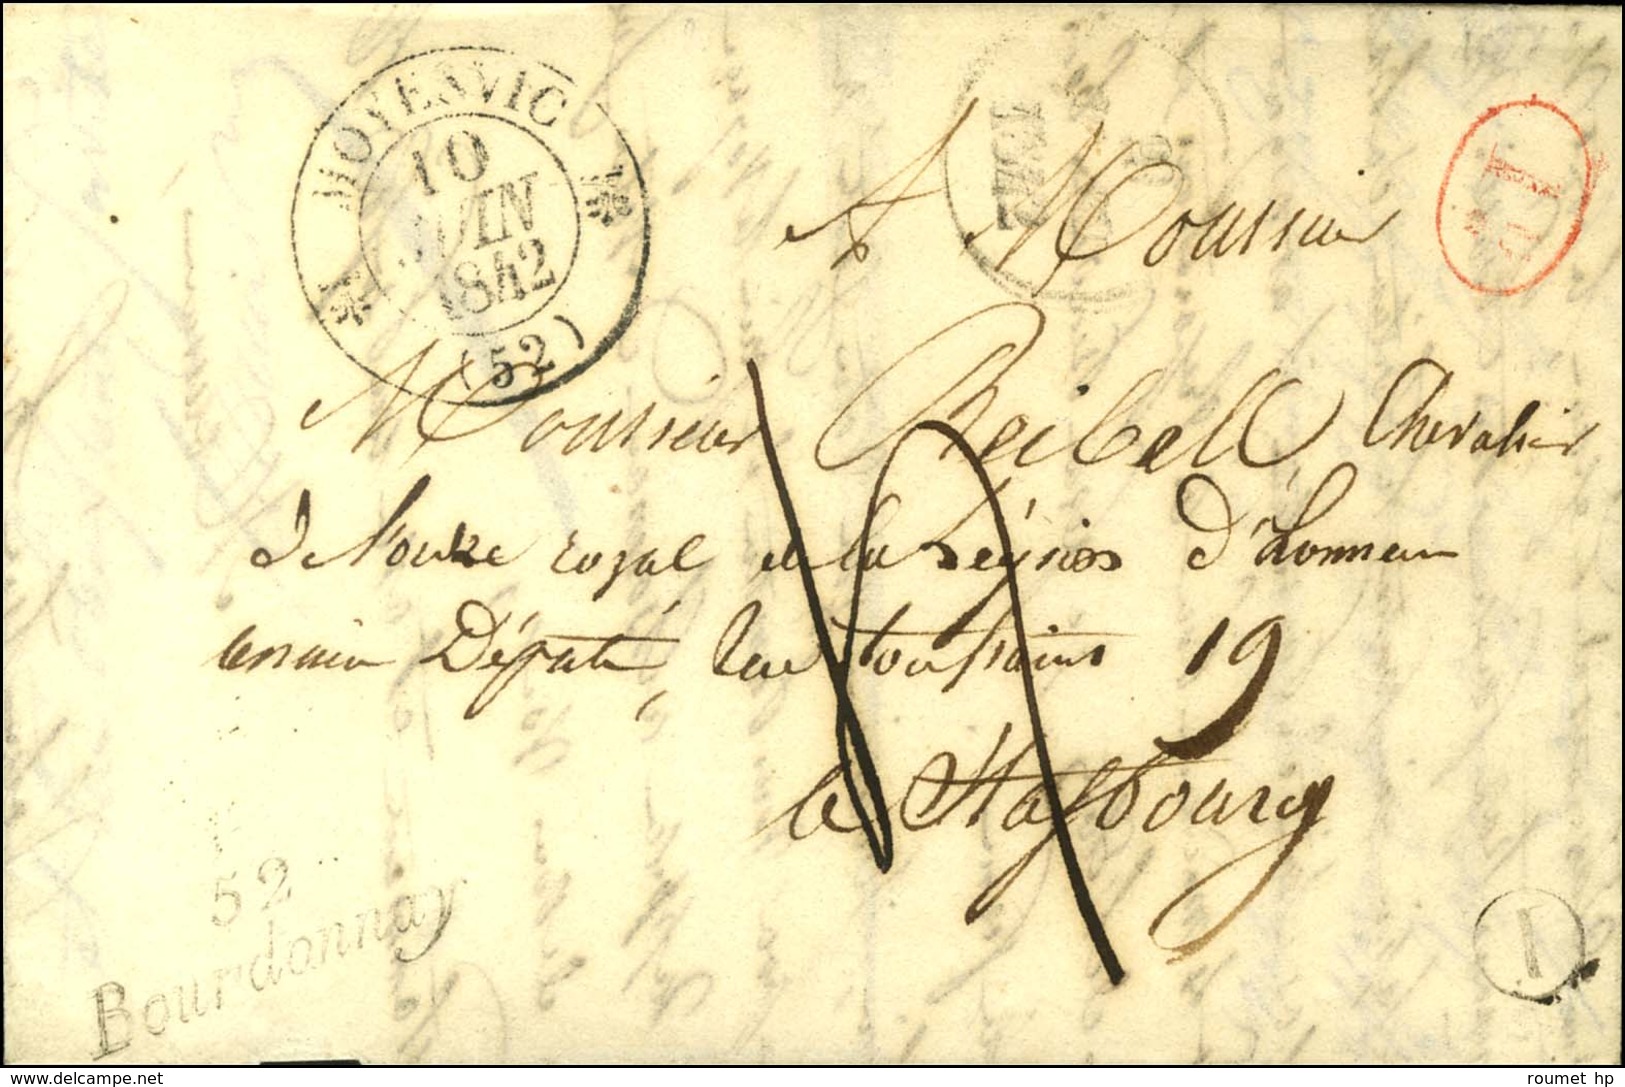 MOYENVIC
10
JUIN
1842
(52)
A Monsieur
Monsieur Reibell Chevalier
de l'ordre royal de la Légion d'honneur
ancien Député, Rue Toussaint 19
à Strasbourg
52
Bourdonnay
I
roumet hp